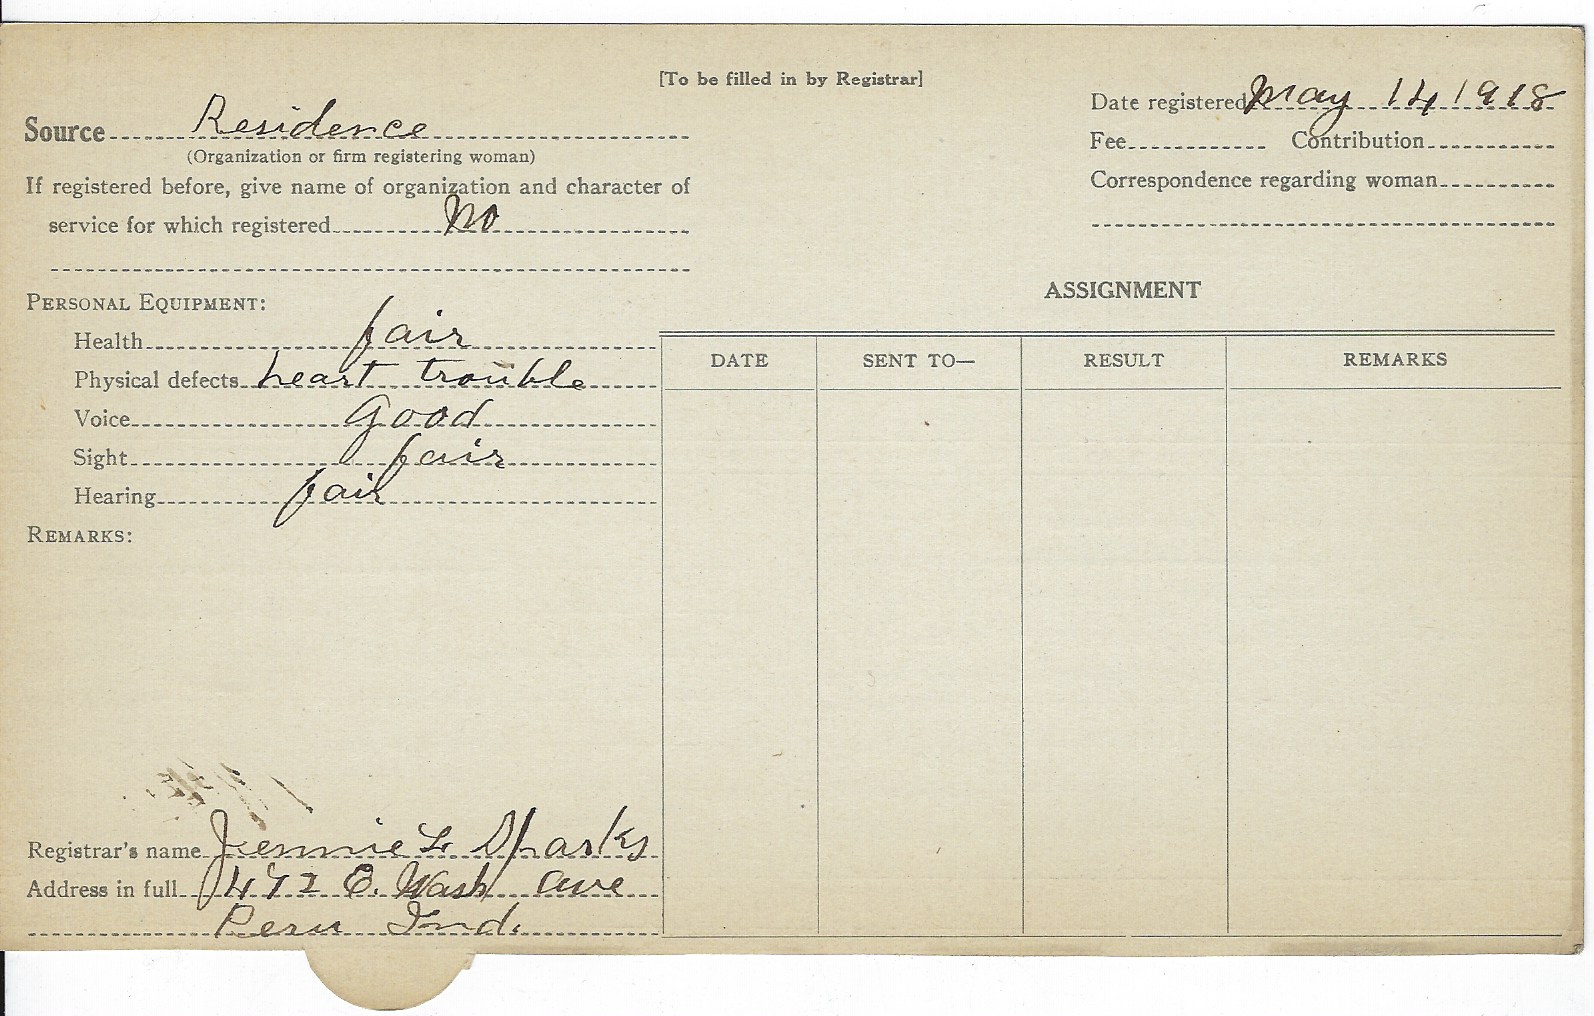 [To be filled in by Registrar]
Source Residence
(Organization or firm registering woman)
If registered before, give name of organization and character of
service for which registered No
Date registered May 14 1918
Fee Contribution
Correspondence regarding woman
PERSONAL EQUIPMENT:
Health fair
Physical defects heart trouble
Voice good
Sight fair
Hearing fair
REMARKS:
Registrar's name Jennie L Sparks
Address in full 472 E. Wash Ave
Peru Ind.
ASSIGNMENT
DATE SENT TO— RESULT REMARKS